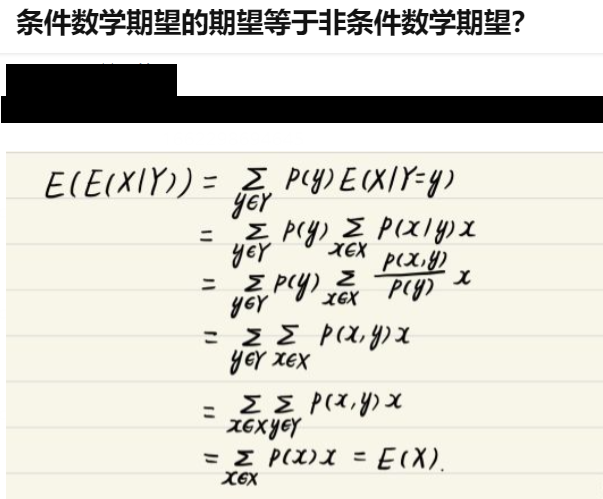 条件数学期望的期望等于非条件数学期望？
E(E(X|Y)) = Σ_{y∈Y} P(y) E(X|Y=y)
= Σ_{y∈Y} P(y) Σ_{x∈X} P(x|y) x
= Σ_{y∈Y} P(y) Σ_{x∈X} \frac{P(x,y)}{P(y)} x
= Σ_{y∈Y} Σ_{x∈X} P(x,y) x
= Σ_{x∈X} Σ_{y∈Y} P(x,y) x
= Σ_{x∈X} P(x) x = E(X).